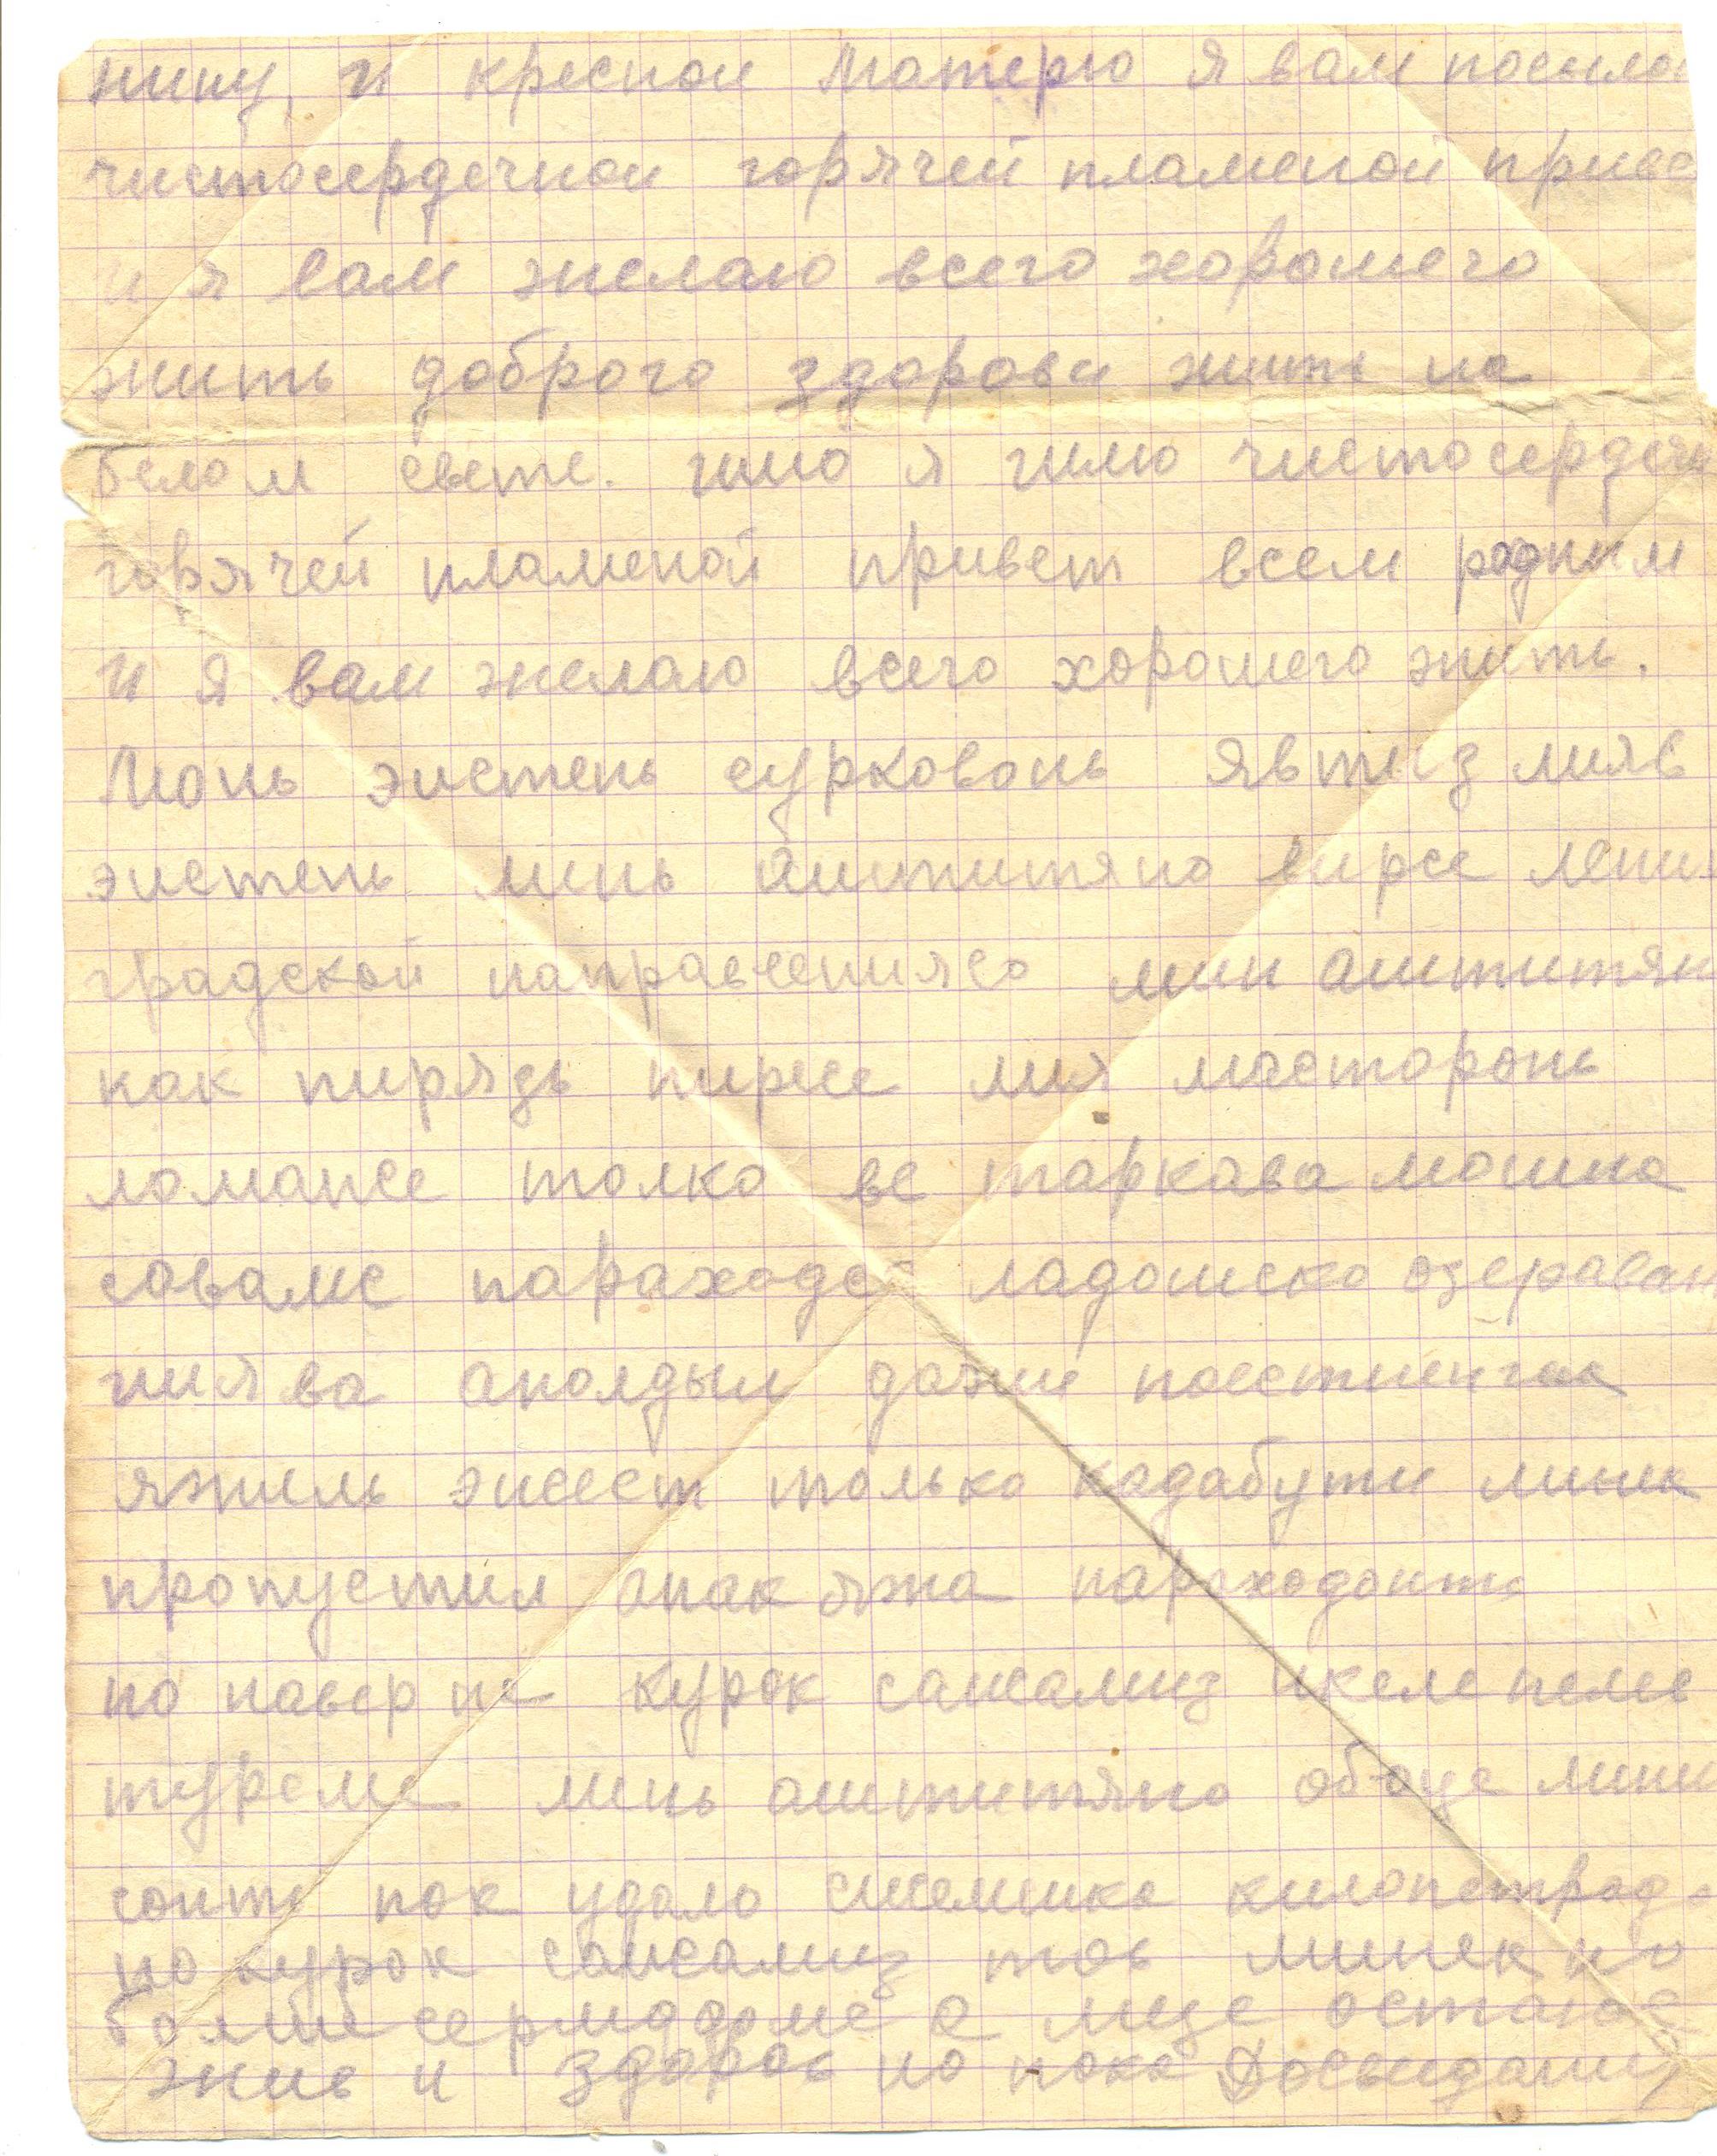 нину, и кресной матерю я вам посыла
чистосердечной горячей пламеной приве
и я вам желаю всего хорошего
жить доброго здорови жить на
белом свете. ишо я шлю чистосердечн
горячей пламеной привет всем родным
и я вам желаю всего хорошего жить.
Монь эйстень сурковонь явтыз мияв
эйстень минь аштитяно вирсе ленин
градской направленнясо мин аштитян
как пирядь пирьсе мия масторонь
ломансе толко ве таркава мошна
совамс параходсо ладошско озераван
ниява аполдым даже
эйсест только кадабути минек
пропустил апак яжа параходонть
но наверне курок сайсамиз икеле пелев
туреме минь аштитяно обоце лини
сонть пок удало сисемшка километрад.
но курок сайсамиз тов минек но
больше сермадомс а мезе остаюс
жив и здоров но пока Досвидания